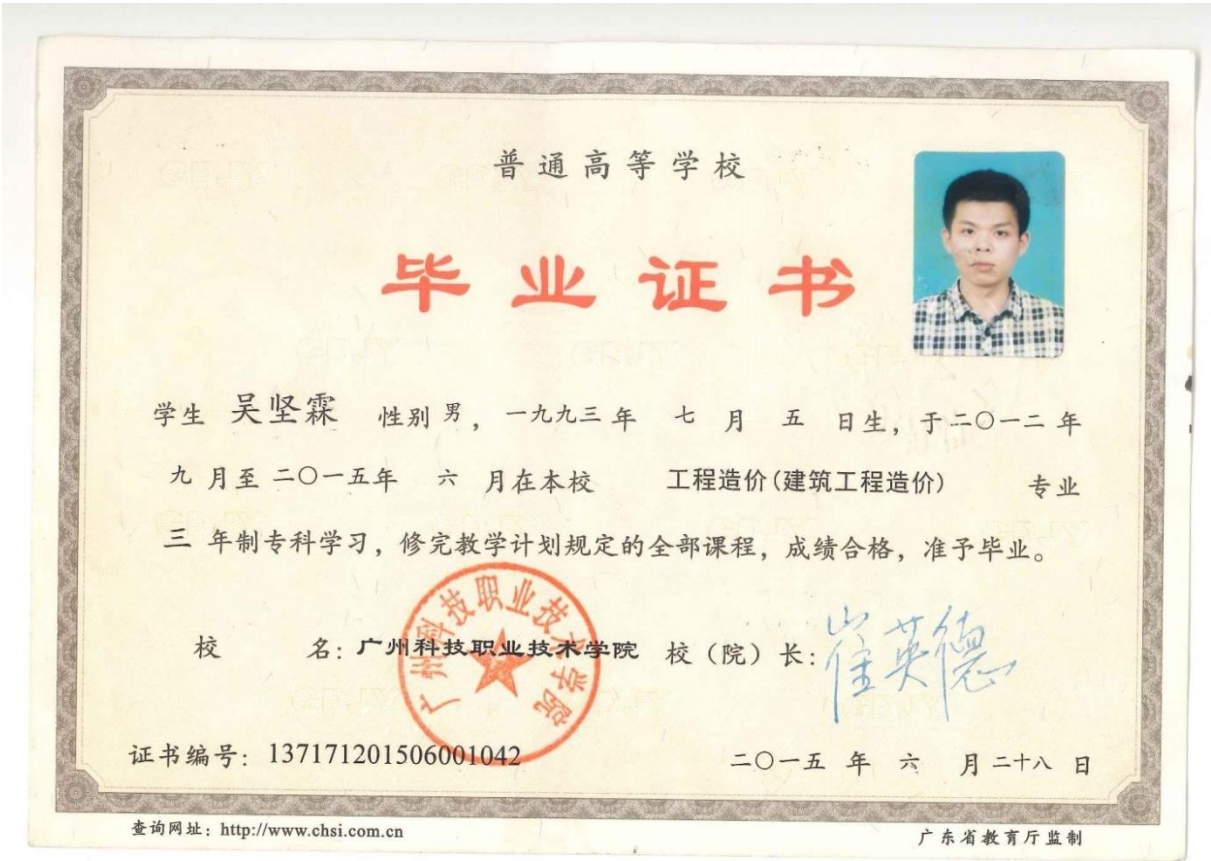 普通高等学校
毕业证书
学生 吴坚霖 性别 男，一九九三年 七 月 五 日生，于二〇一二年
九 月至 二〇一五年 六 月在本校 工程造价(建筑工程造价) 专业
三 年制专科学习，修完教学计划规定的全部课程，成绩合格，准予毕业。
校 名：广州科技职业技术学院 校（院）长：崔英德
广州科技职业技术学院
证书编号：137171201506001042 二〇一五 年 六 月 二十八 日
查询网址：http://www.chsi.com.cn 广东省教育厅监制